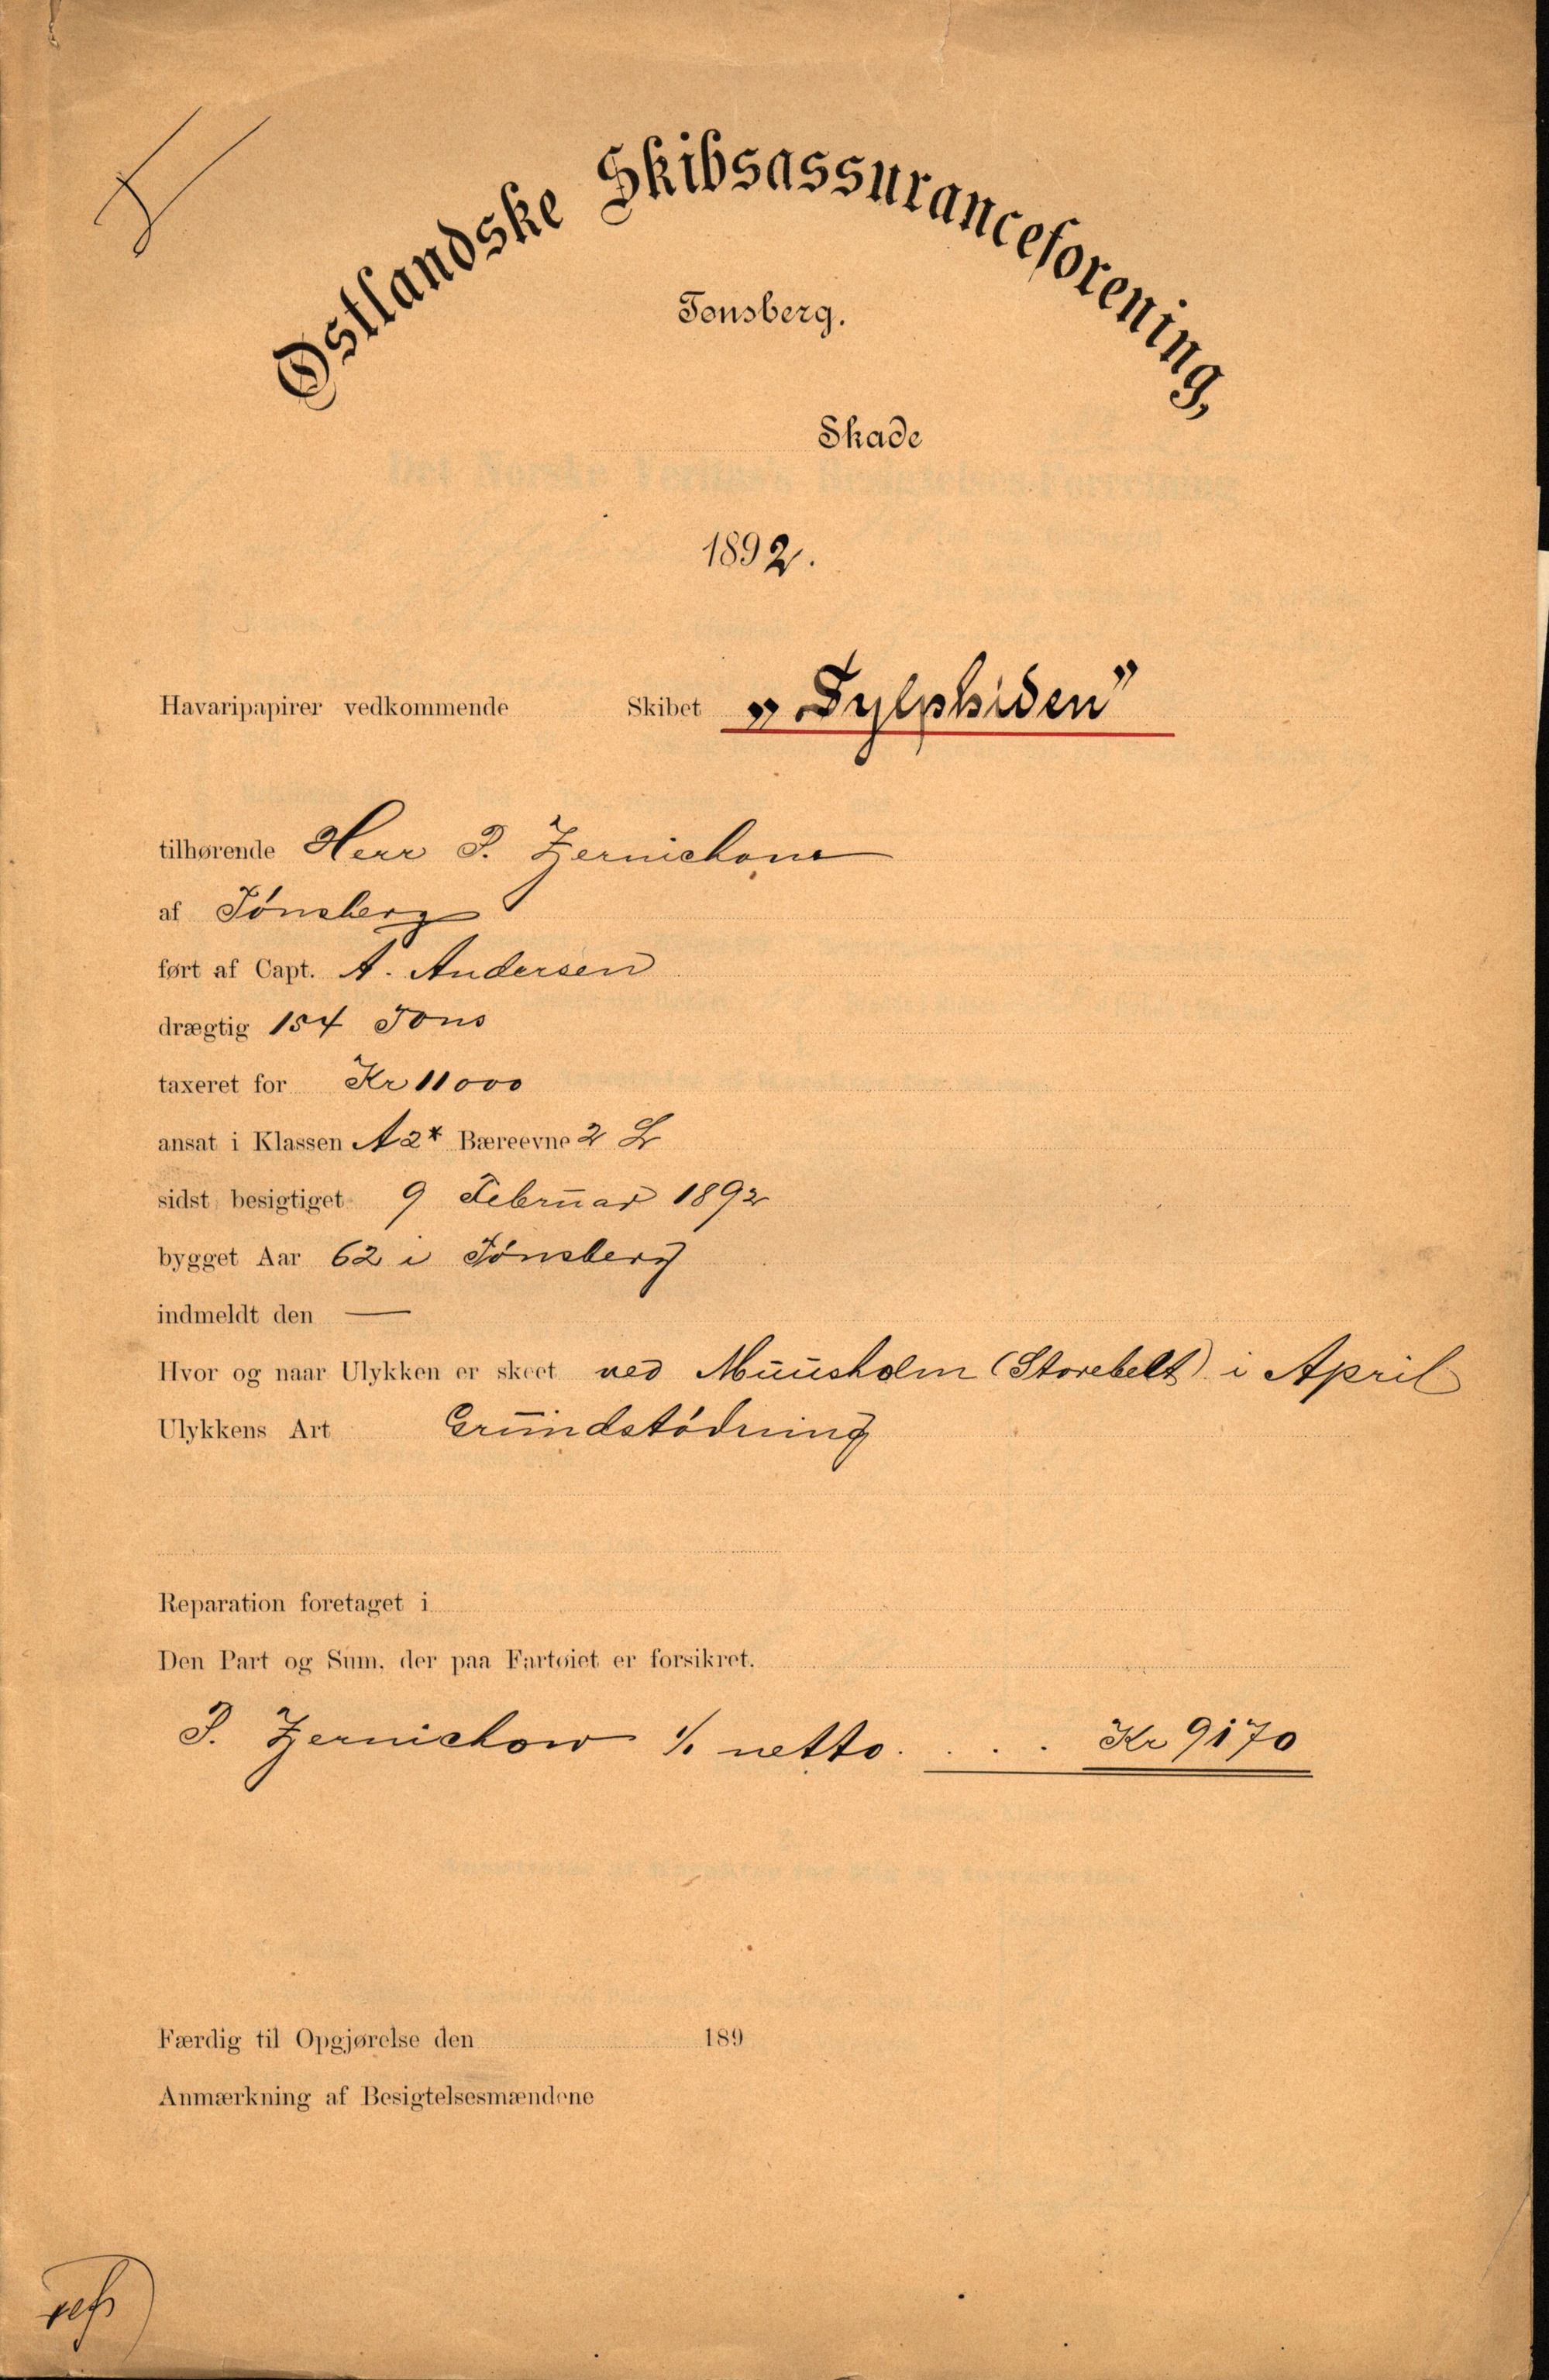 Østlandske Skibsassuranceforening,
Tønsberg.
Skade
1892.
Havaripapirer vedkommende Skibet „Sylphiden”
tilhørende Herr P. Zernichow
af Tønsberg
ført af Capt. A. Andersen
drægtig 154 Tons
taxeret for Kr 11000
ansat i Klassen A2* Bæreevne 2 L
sidst besigtiget 9 Februar 1892
bygget Aar 62 i Tønsberg
indmeldt den —
Hvor og naar Ulykken er skeet ved Muusholm (Storebelt) i April
Ulykkens Art Grundstødning
Reparation foretaget i
Den Part og Sum, der paa Fartøiet er forsikret.
P. Zernichow 1/1 netto. . . . Kr 9170
Færdig til Opgjørelse den 189
Anmærkning af Besigtelsesmændene